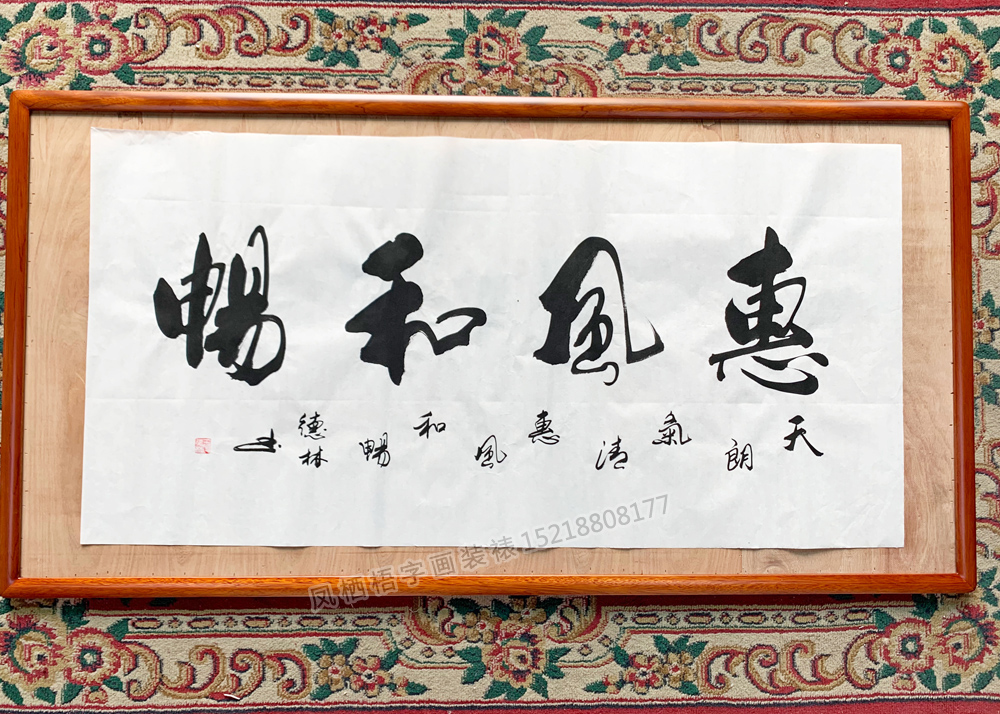 惠風和暢
天朗氣清惠風和暢
德林书
凤栖梧字画装裱15218808177